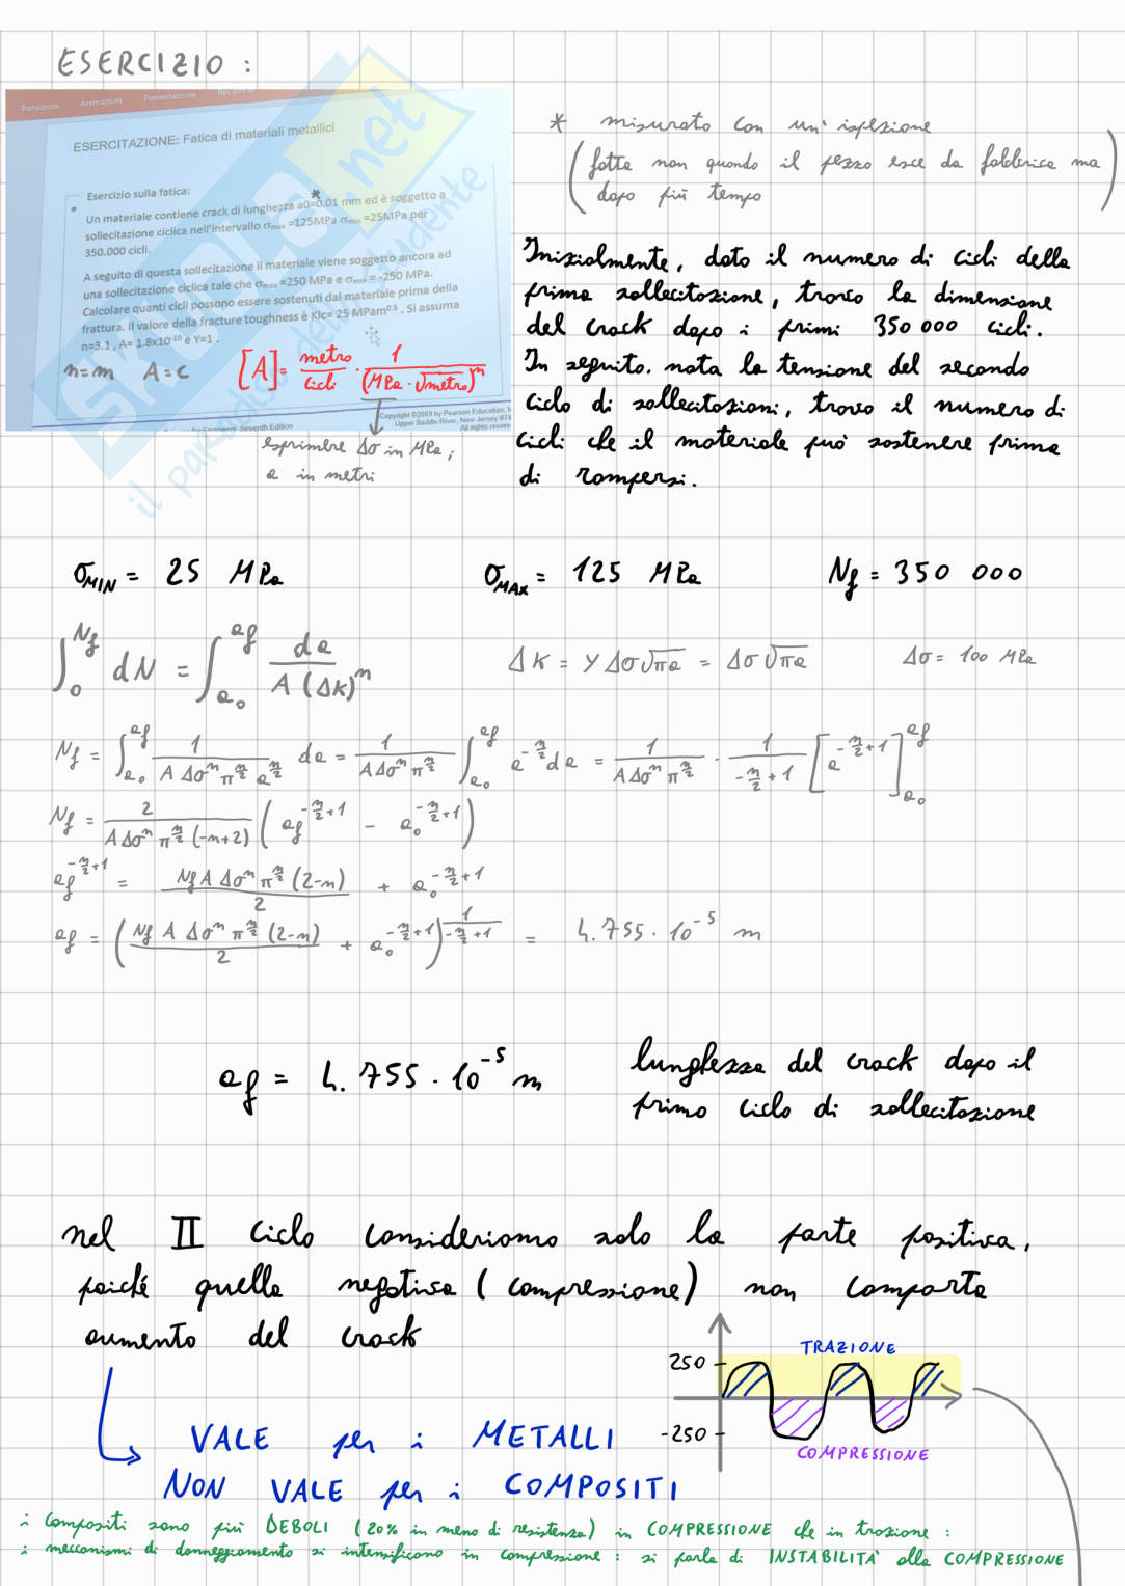 ESERCIZIO :
ESERCITAZIONE: Fatica di materiali metallici
Esercizio sulla fatica:
*
Un materiale contiene crack di lunghezza a0=0.01 mm ed è soggetto a
sollecitazione ciclica nell'intervallo σmax =125MPa σmin =25MPa per
350.000 cicli.
A seguito di questa sollecitazione il materiale viene soggetto ancora ad
una sollecitazione ciclica tale che σmax =250 MPa e σmin = -250 MPa.
Calcolare quanti cicli possono essere sostenuti dal materiale prima della
frattura. Il valore della fracture toughness è KIc= 25 MPam^0.5 . Si assuma
n=3.1 , A= 1.8x10^-10 e Y=1 .
n=m A=c [A]= metro/cicli · 1/(MPa·√metro)^n
Copyright ©2003 by Pearson Education,
Upper Saddle River, New Jersey
All rights
Seventh Edition
esprimere Δσ in MPa ;
a in metri
* misurato con un' ispezione
(fatta non quando il pezzo esce da fabbrica ma
dopo più tempo)
Inizialmente, dato il numero di cicli della
prima sollecitazione, trovo la dimensione
del crack dopo i primi 350 000 cicli.
In seguito, nota la tensione del secondo
ciclo di sollecitazioni, trovo il numero di
cicli che il materiale può sostenere prima
di rompersi.
σMIN = 25 MPa σMAX = 125 MPa Nf = 350 000
∫_0^Nf dN = ∫_a0^af da / A (Δk)^m ΔK = YΔσ√πa = Δσ√πa Δσ = 100 MPa
Nf = ∫_a0^af 1/(A Δσ^n π^(n/2) a^(n/2)) da = 1/(AΔσ^n π^(n/2)) ∫_a0^af a^(-n/2) da = 1/(AΔσ^n π^(n/2)) · 1/(-n/2+1) [a^(-n/2+1)]_a0^af
Nf = 2/(AΔσ^n π^(n/2) (-n+2)) (af^(-n/2+1) - a0^(-n/2+1))
af^(-n/2+1) = Nf A Δσ^n π^(n/2) (2-n)/2 + a0^(-n/2+1)
af = (Nf A Δσ^n π^(n/2) (2-n)/2 + a0^(-n/2+1))^(1/(-n/2+1)) = 4.755·10^-5 m
af = 4.755·10^-5 m lunghezza del crack dopo il
primo ciclo di sollecitazione
nel II ciclo consideriamo solo la parte positiva,
poiché quella negativa (compressione) non comporta
aumento del crack
TRAZIONE
250
-250
COMPRESSIONE
VALE per i METALLI
NON VALE per i COMPOSITI
i compositi sono più DEBOLI (20% in meno di resistenza) in COMPRESSIONE che in trazione :
i meccanismi di danneggiamento si intensificano in compressione : si parla di INSTABILITA' alla COMPRESSIONE